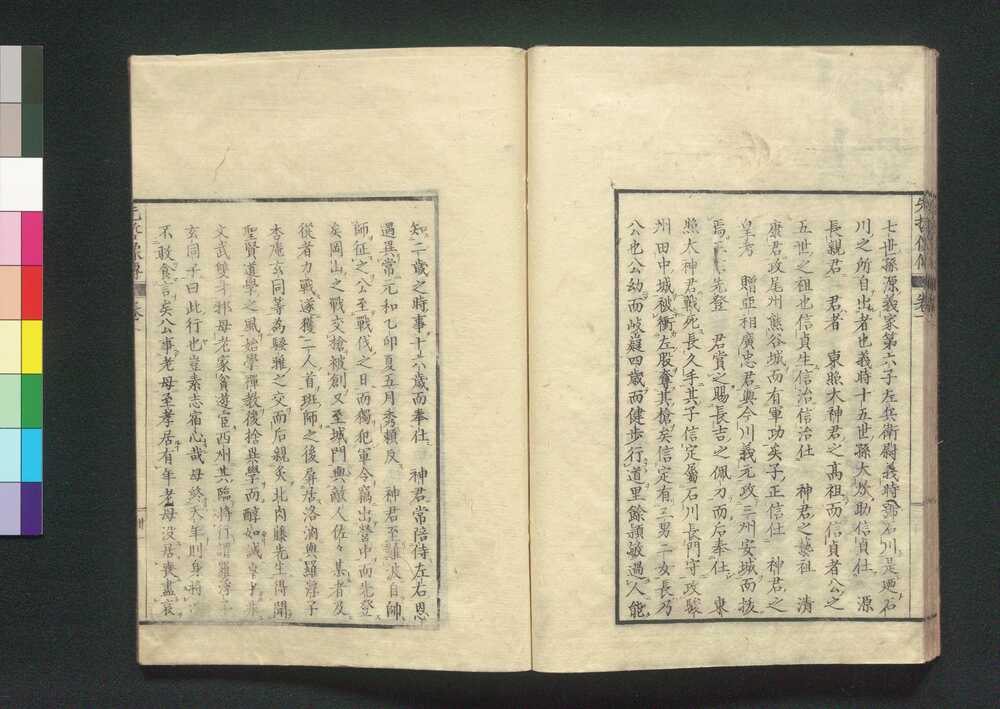 先哲像傳 卷一
七世孫源義家第六子左兵衛尉義時號石川是迺石
川之所自出者也義時十五世孫大炊助信貞仕 源
長親君 君者 東照大神君之高祖而信貞者公之
五世之祖也信貞生信治信治仕 神君之藝祖 清
康君政尾州熊谷城而有軍功矣子正信仕 神君之
皇考 贈亞相廣忠君與今川義元政三州安城而拔
焉正信先登 君賞之賜長吉之佩刀而后奉仕 東
照大神君戰死長久手其子信定屬石川長門守政駿
州田中城被衝左股奪其槍矣信定有三男二女長乃
公也公幼而岐嶷四歲而健步行道里餘頴敏過人能
知二歲之時事十六歲而奉仕 神君常陪侍左右恩
遇異常元和乙卯夏五月秀頼反 神君至難波自帥
師征之公至戰伐之日而獨犯軍令竊出營中而先登
矣岡山之戰交槍被創又至城門與敵人佐々某者及
從者力戰遂獲二人首班師之後屏居洛汭與羅浮子
杏庵玄同等為騷雅之交而后親炙北肉藤先生得聞
聖賢道學之風始學禪教後捨異學而醇如
文武雙才邪母老家貧遊宦西州其臨將行謂羅浮子
玄同子曰此行也豈素志宿心哉母終天年則身將
不敢食言矣公事老母至孝居有年老母沒居喪盡哀
先哲像傳 卷一